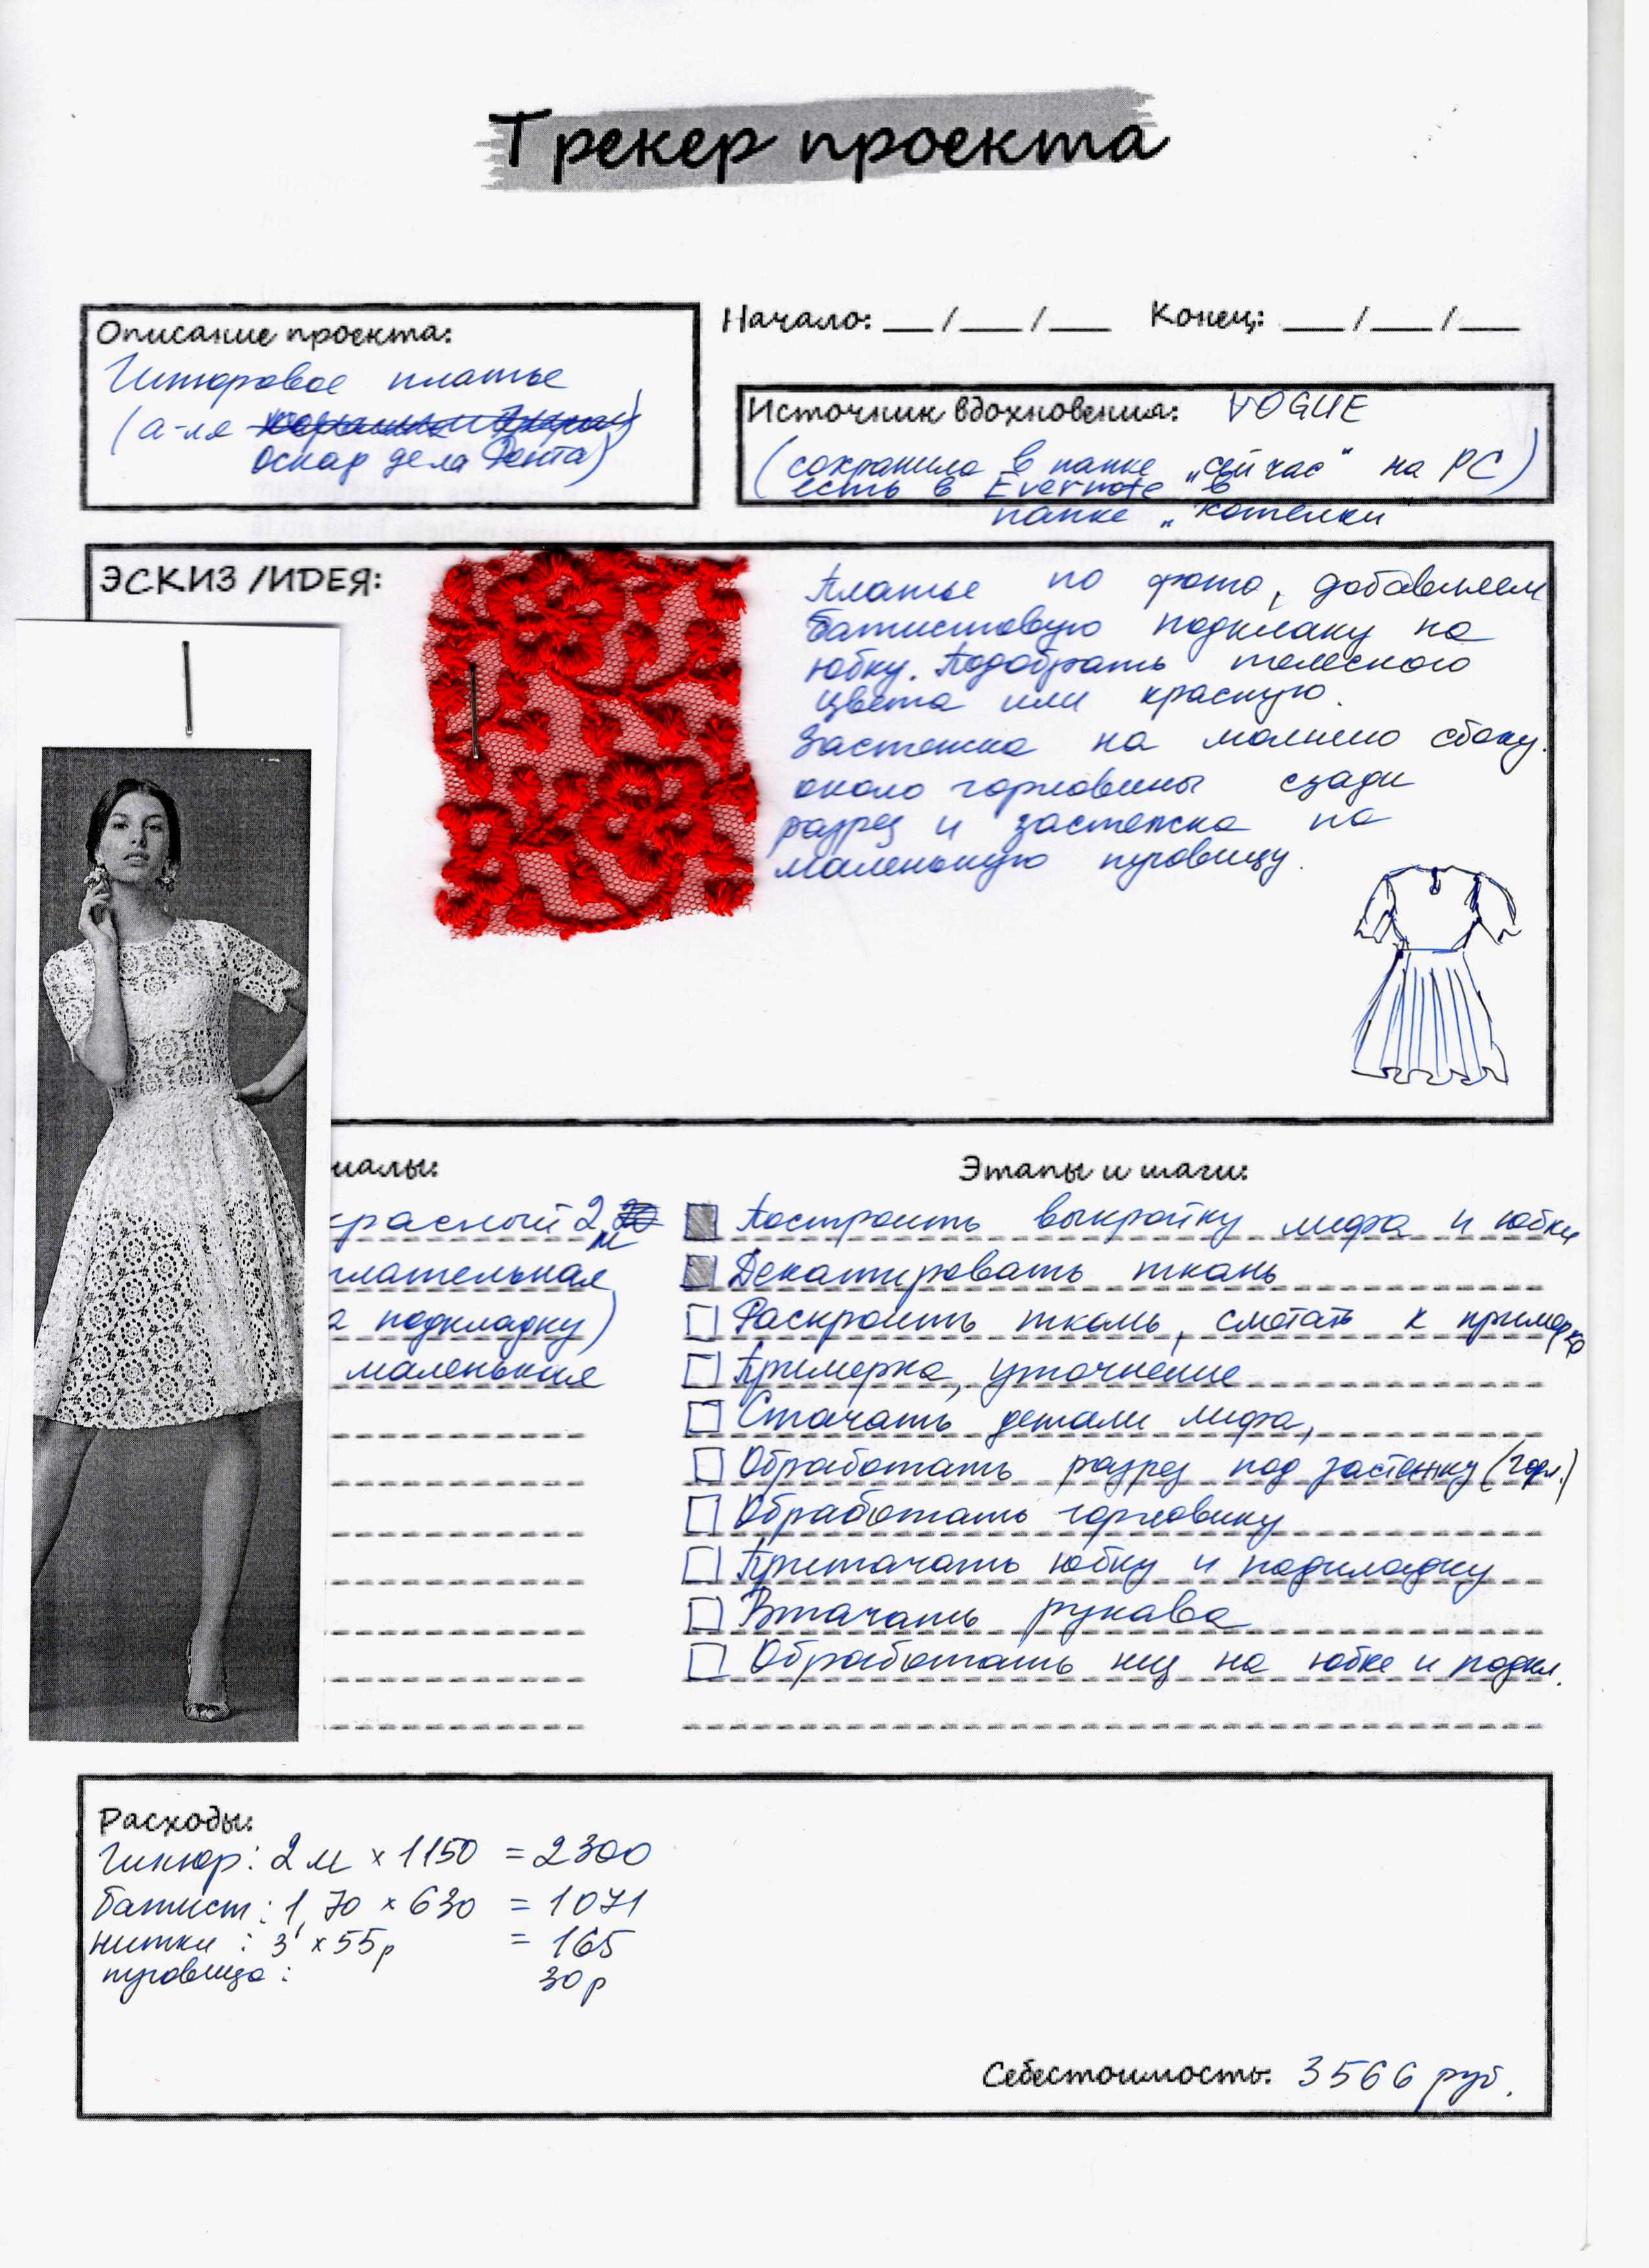 Трекер проекта
Описание проекта:
Гипюровое платье
(а-ля
оскар дела Рента)
Начало: __/__/__ Конец: __/__/__
Источник вдохновения: VOGUE
(сохранила в папке „сейчас“ на PC)
есть в Evernote в
папке „хотелки
ЭСКИЗ /ИДЕЯ:
Платье по фото, добавляем
батистовую подклаку на
юбку. Подобрать телесного
цвета или красную.
Застежка на молнию сбоку.
около горловины сзади
разрез и застежка на
маленькую пуговицу.
иалы:
красный 2
м
гательная
а подкладку)
маленькие
Этапы и шаги:
Построить выкройку лифа и юбки
Декатировать ткань
Раскроить ткань, сметать к примерке
Примерка, уточнение
Стачать детали лифа,
Обработать разрез под застежку (горл.)
Обработать горловину
Притачать юбку и подкладку
Втачать рукава
Обработать низ на юбке и подкл.
Расходы:
Гипюр: 2 м × 1150 = 2300
батист: 1,70 × 630 = 1071
нитки : 3 × 55р = 165
пуговица: 30р
Себестоимость: 3566 руб.